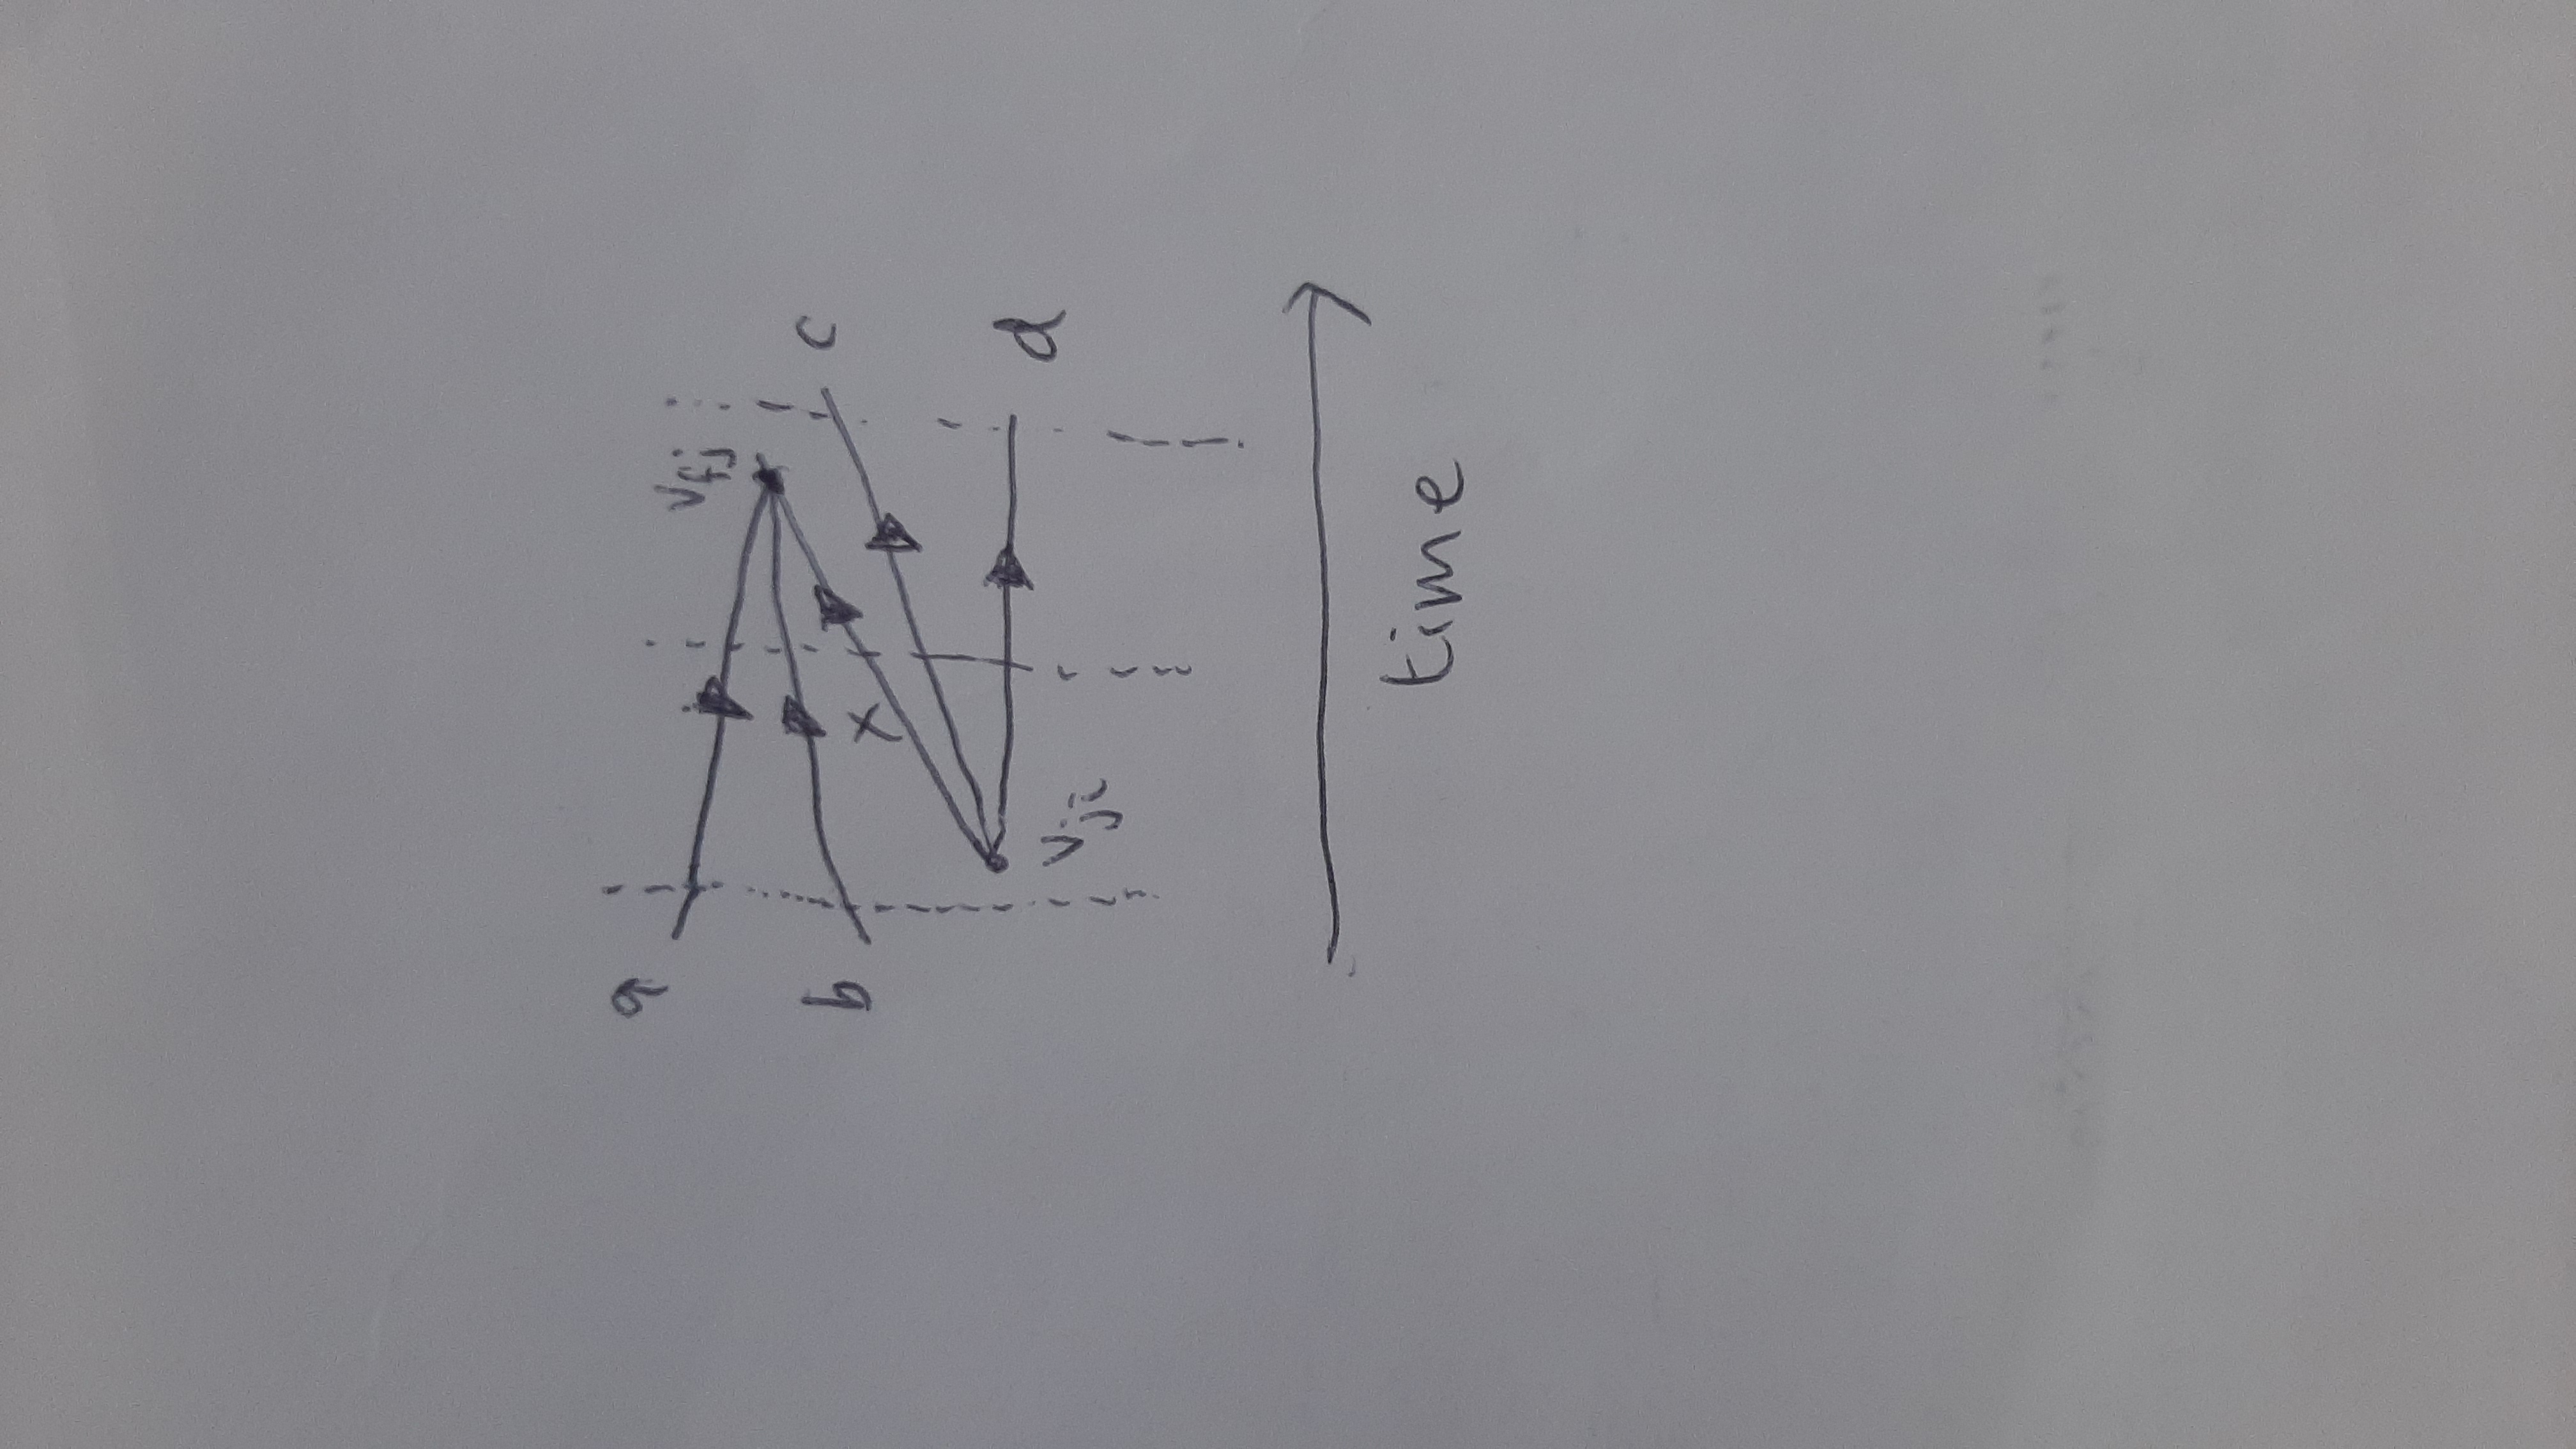 a
V_fj
b
x
c
d
V_ji
time